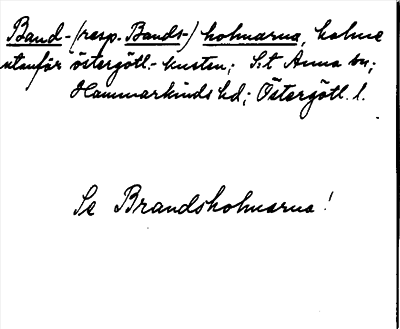 Band- (resp. Bands-) holmarna, holme
utanför östergötl.-kusten; S:t Anna sn;
Hammarkinds hd; Östergötl. l.
Se Brandsholmarna!